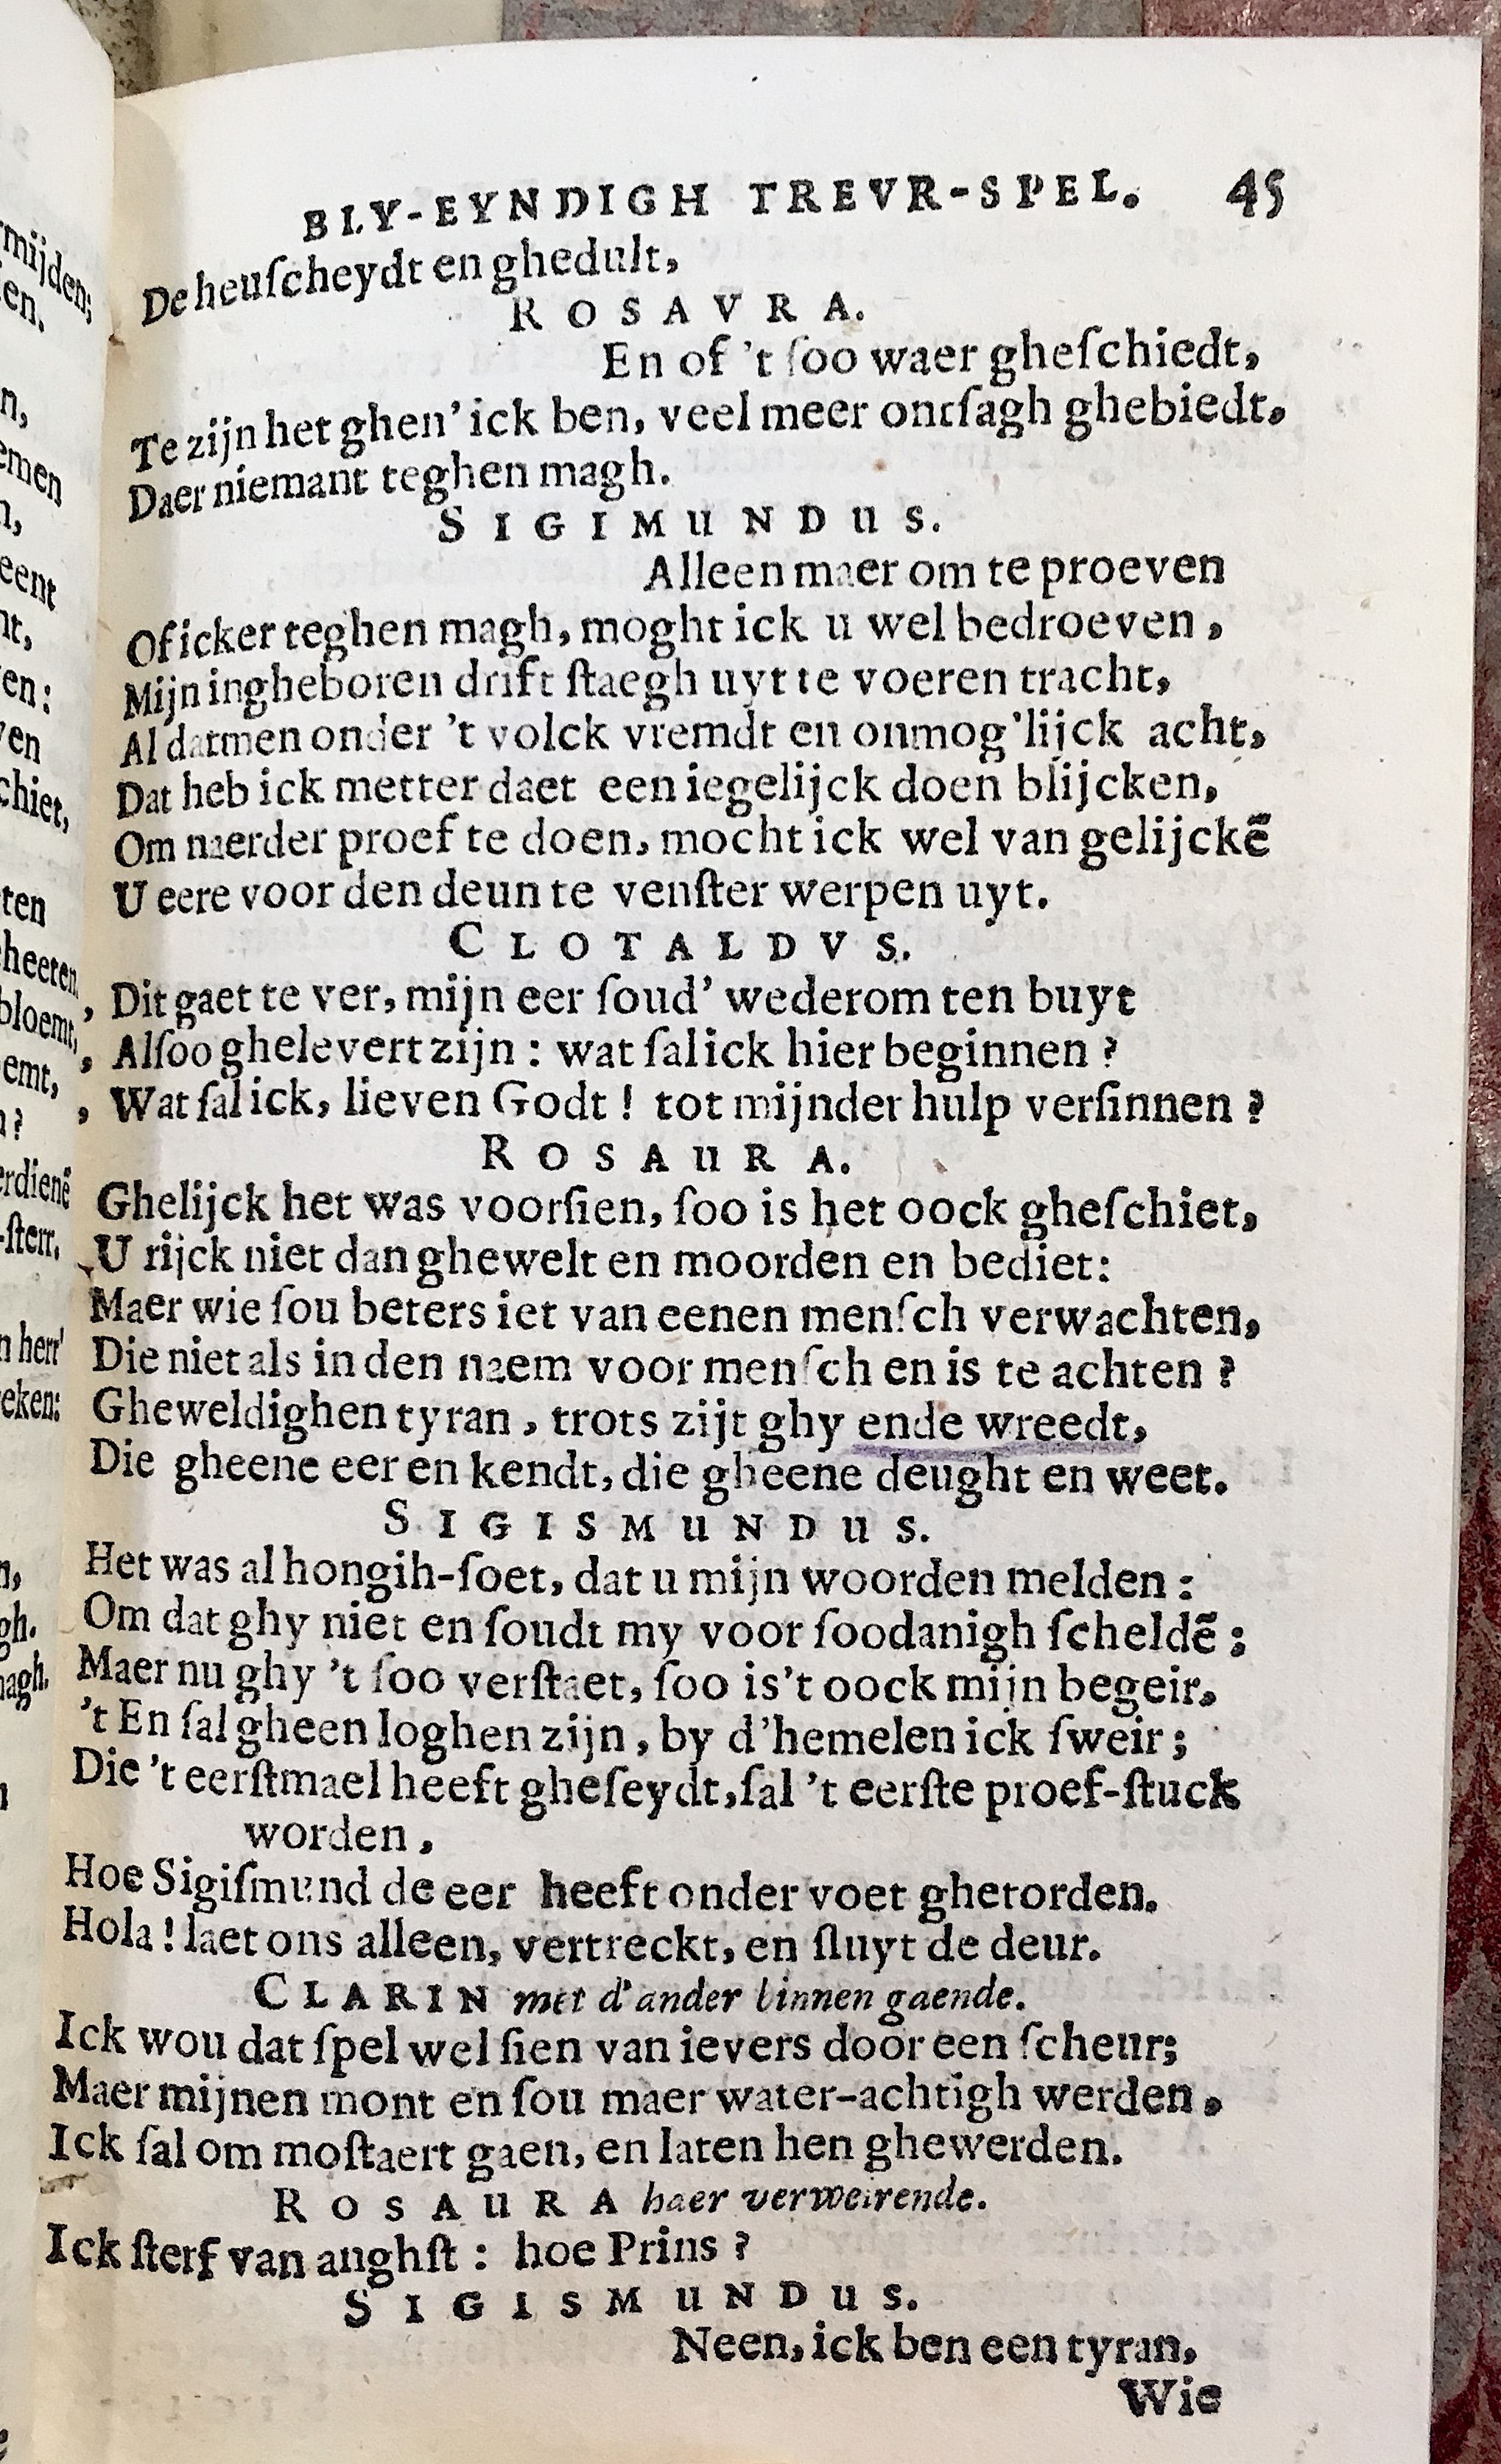 BLY-EYNDIGH TREVR-SPEL. 45
De heuſcheydt en ghedult,
ROSAVRA.
En of 't ſoo waer gheſchiedt,
Te zijn het ghen' ick ben, veel meer ontſagh ghebiedt,
Daer niemant teghen magh.
SIGIMUNDUS.
Alleen maer om te proeven
Of icker teghen magh, moght ick u wel bedroeven,
Mijn ingheboren drift ſtaegh uyt te voeren tracht,
Al datmen onder 't volck vremdt en onmog'lijck acht,
Dat heb ick metter daet een iegelijck doen blijcken,
Om naerder proef te doen, mocht ick wel van gelijckē
U eere voor den deun te venſter werpen uyt.
CLOTALDVS.
, Dit gaet te ver, mijn eer ſoud' wederom ten buyt
, Alſoo ghelevert zijn : wat ſal ick hier beginnen ?
, Wat ſal ick, lieven Godt ! tot mijnder hulp verſinnen ?
ROSAURA.
Ghelijck het was voorſien, ſoo is het oock gheſchiet,
U rijck niet dan ghewelt en moorden en bediet:
Maer wie ſou beters iet van eenen menſch verwachten,
Die niet als in den naem voor menſch en is te achten ?
Gheweldighen tyran, trots zijt ghy ende wreedt,
Die gheene eer en kendt, die gheene deught en weet.
SIGISMUNDUS.
Het was al hongih-ſoet, dat u mijn woorden melden :
Om dat ghy niet en ſoudt my voor ſoodanigh ſcheldē ;
Maer nu ghy 't ſoo verſtaet, ſoo is't oock mijn begeir,
't En ſal gheen loghen zijn, by d'hemelen ick ſweir ;
Die 't eerſtmael heeft gheſeydt, ſal 't eerſte proef-ſtuck
worden,
Hoe Sigiſmund de eer heeft onder voet ghetorden.
Hola ! laet ons alleen, vertreckt, en ſluyt de deur.
CLARIN met d'ander binnen gaende.
Ick wou dat ſpel wel ſien van ievers door een ſcheur;
Maer mijnen mont en ſou maer water-achtigh werden,
Ick ſal om moſtaert gaen, en laten hen ghewerden.
ROSAURA haer verweirende.
Ick ſterf van anghſt : hoe Prins ?
SIGISMUNDUS.
Neen, ick ben een tyran,
Wie